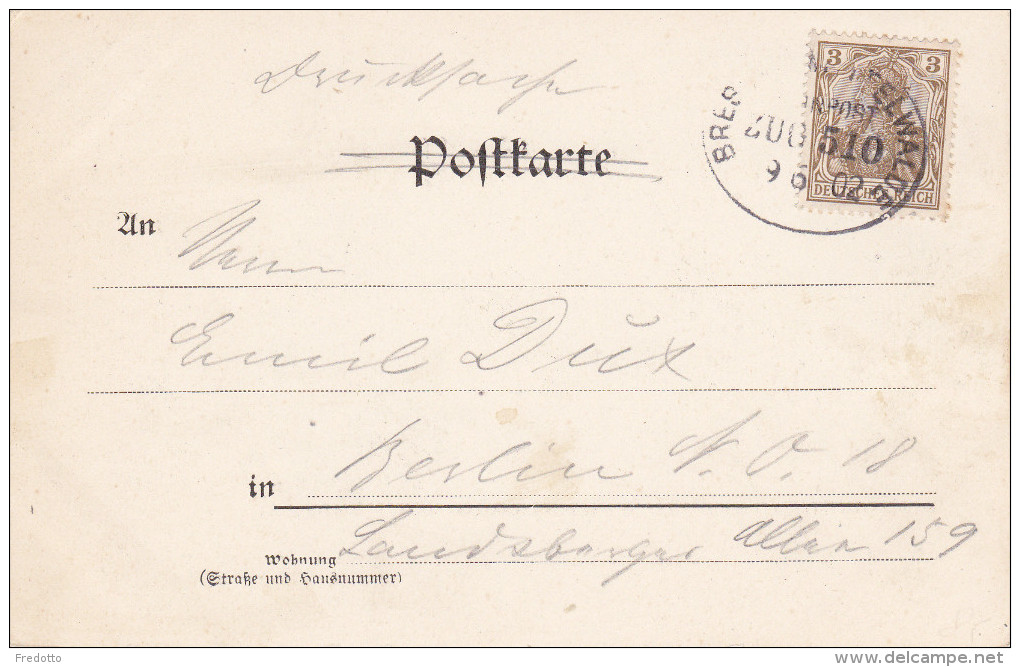 Drucksache
Postkarte
3 3
DEUTSCHES REICH
BRES
ZUG 510
9 6 02
An
Herrn
Emil Dux
in Berlin N. O. 18
Landsberger Allee 159
Wohnung
(Straße und Hausnummer)
Fredotto
delcampe.net